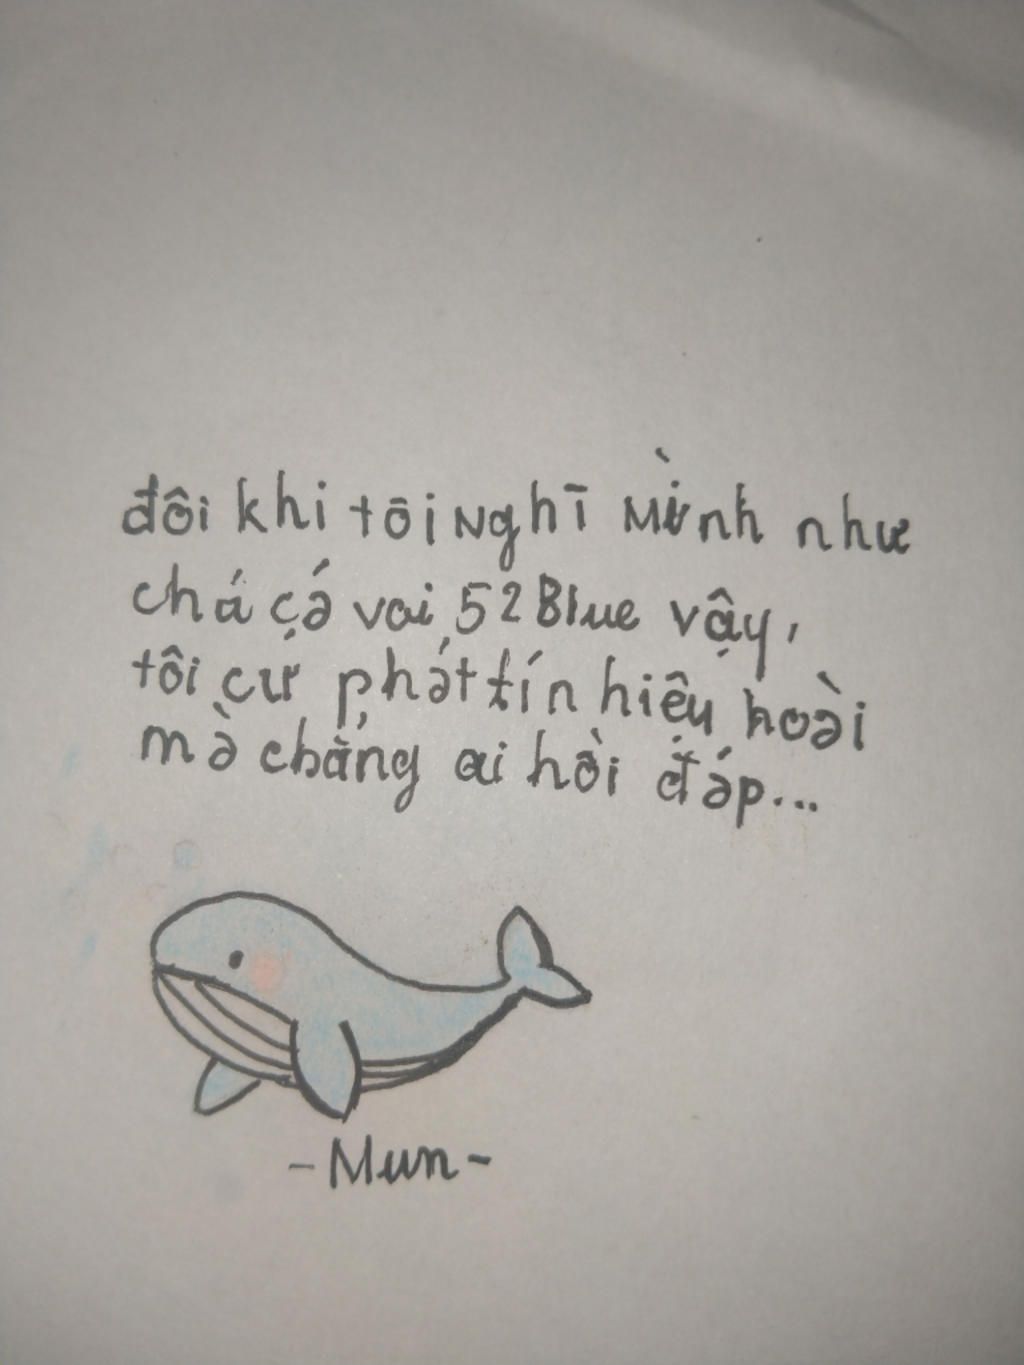 đôi khi tôi nghĩ mình như
chá cá voi 52 Blue vậy,
tôi cứ phát tín hiệu hoài
mà chẳng ai hồi đáp...
-Mun-